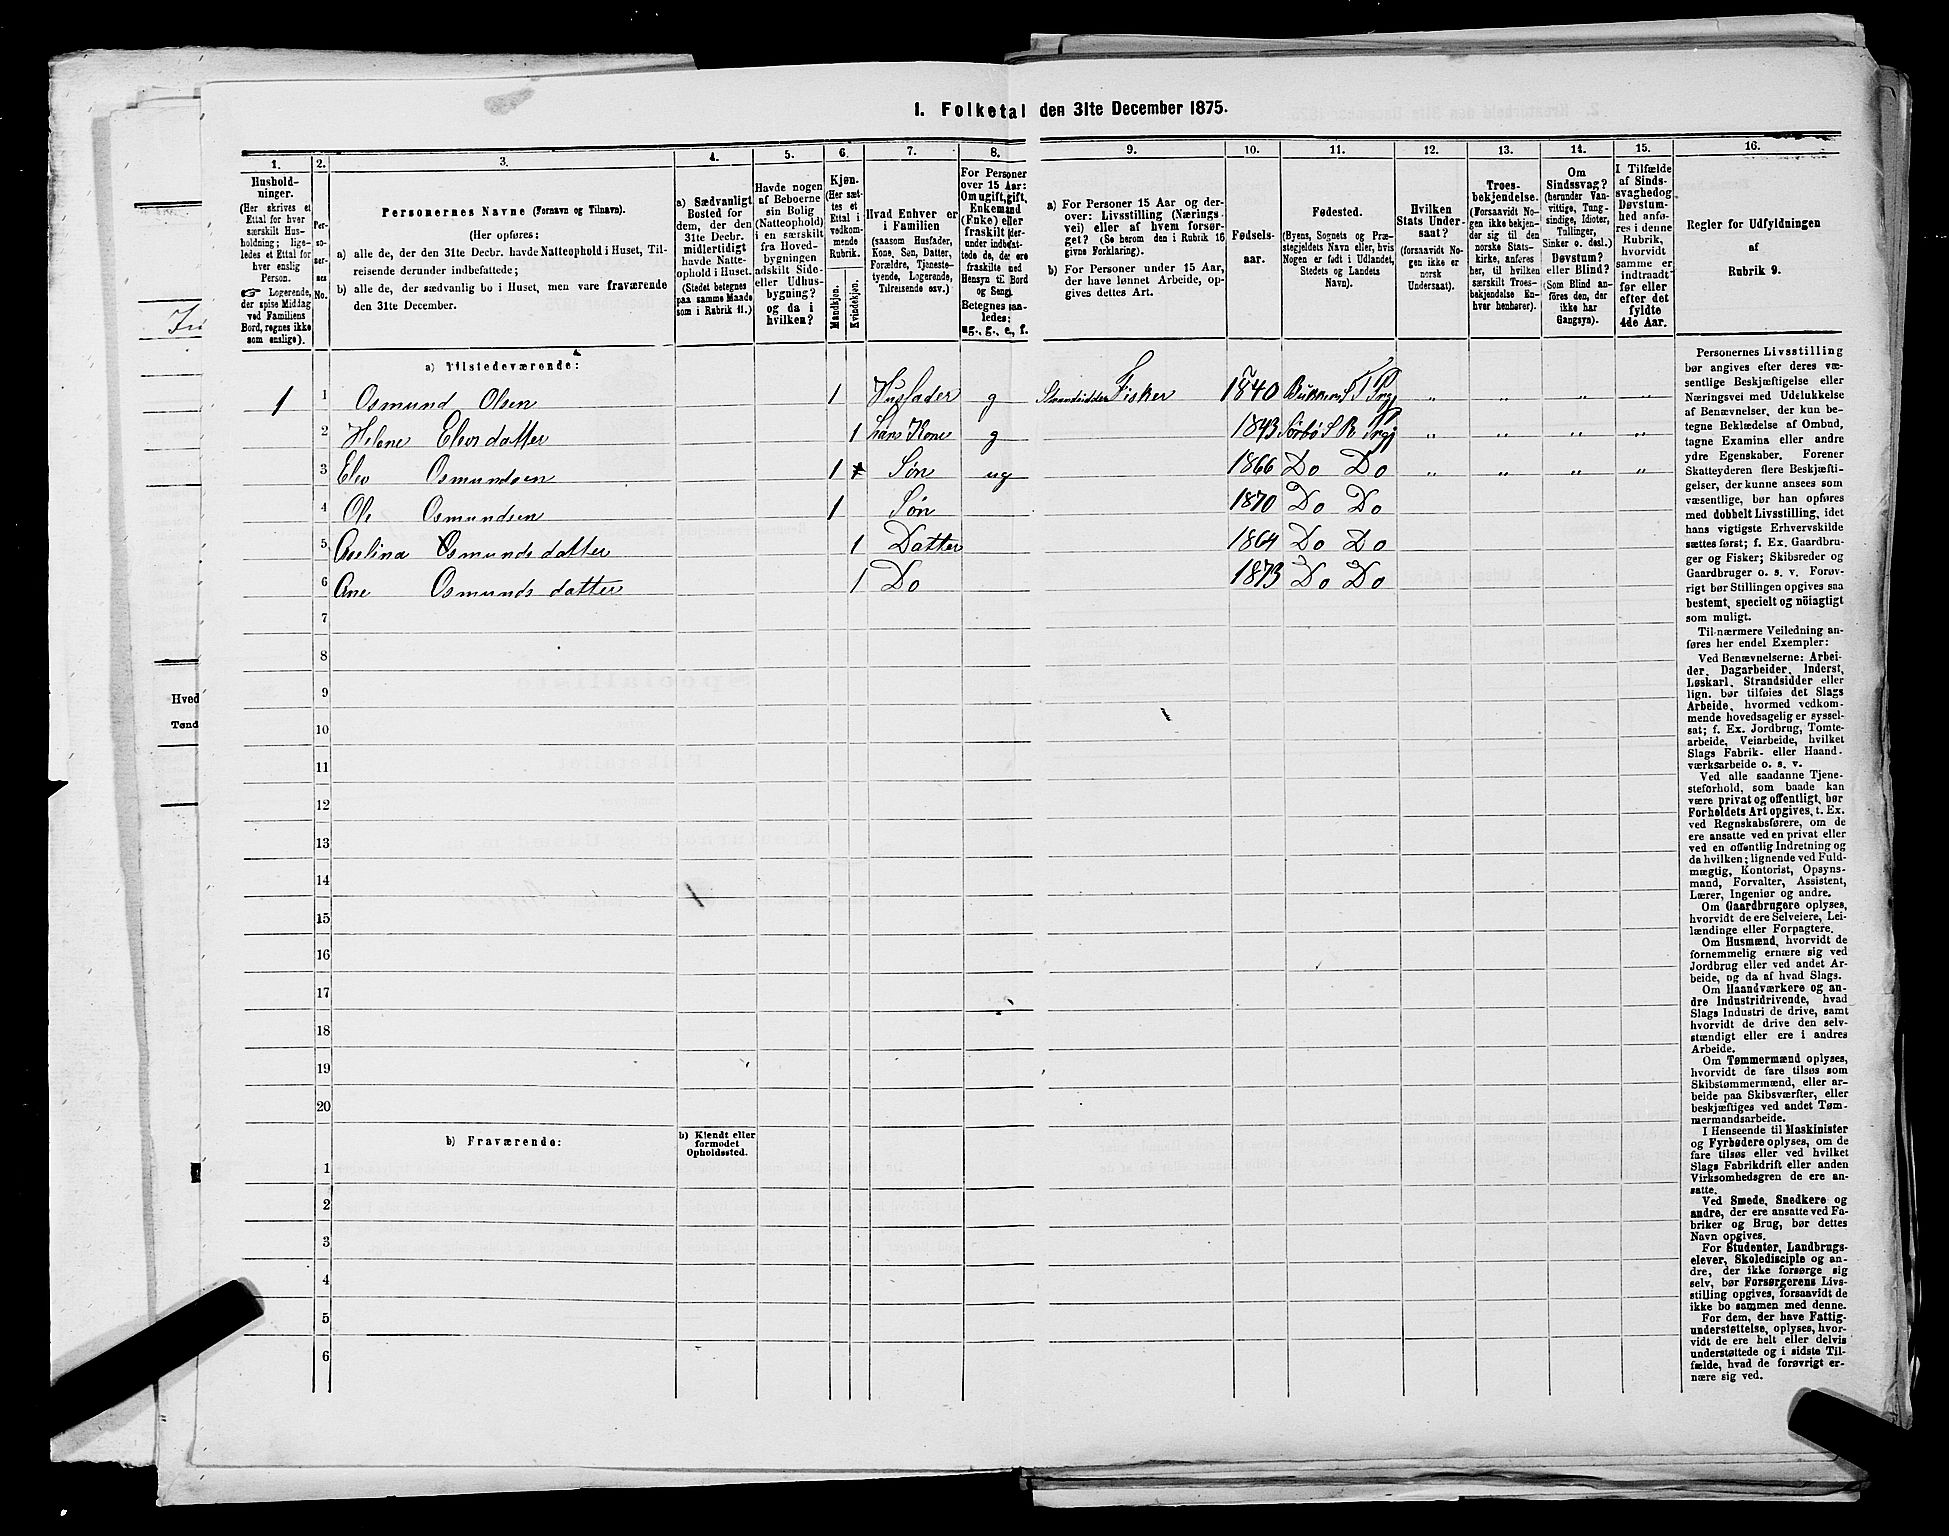 1. Folketal den 31te December 1875.
1. 2. 3. 4. 5. 6. 7. 8. 9. 10. 11. 12. 13. 14. 15. 16.
Hushold-
ninger.
(Her skrives et
Ettal for hver
særskilt Hus-
holdning; lige-
ledes et Ettal for
hver enslig
Person.
☞ Logerende,
der spise Middag
ved Familiens
Bord, regnes ikke
som enslige).
Per-
so-
ner-
nes
No.
Personernes Navne (Fornavn og Tilnavn).
(Her opføres:
a) alle de, der den 31te Decbr. havde Natteophold i Huset, Til-
reisende derunder indbefattede;
b) alle de, der sædvanlig bo i Huset, men vare fraværende
den 31te December.
a) Sædvanligt
Bosted for
dem, der den
31te Decbr.
midlertidigt
havde Natte-
ophold i Huset.
(Stedet betegnes
paa samme Maade
som i Rubrik 11.)
Havde nogen
af Beboerne
sin Bolig
(Natteophold)
i en særskilt
fra Hoved-
bygningen
adskilt Side-
eller Udhus-
bygning?
og da i
hvilken?
Kjøn.
(Her sæt-
tes et
Ettal i
vedkom-
mende
Rubrik.
Mandkjøn.
Kvindekjøn.
Hvad Enhver er
i Familien
(saasom Husfader,
Kone, Søn, Datter,
Forældre, Tjeneste-
tyende, Logerende,
Tilreisende osv.)
For Personer
over 15 Aar:
Om ugift, gift,
Enkemand
(Enke) eller
fraskilt (der-
under indbefat-
tede de, der ere
fraskilte med
Hensyn til Bord
og Seng).
Betegnes saa-
ledes:
ug., g., e., f.
a) For Personer 15 Aar og der-
over: Livsstilling (Nærings-
vei) eller af hvem forsør-
get? (Se herom den i Rubrik 16
givne Forklaring).
b) For Personer under 15 Aar,
der have lønnet Arbeide, op-
gives dettes Art.
Fødsels-
aar.
Fødested.
(Byens, Sognets og Præ-
stegjeldets Navn eller, hvis
Nogen er født i Udlandet,
Stedets og Landets
Navn).
Hvilken
Stats Under-
saat?
(forsaavidt No-
gen ikke er
norsk
Undersaat).
Troes-
bekjendelse.
(Forsaavidt No-
gen ikke bekjen-
der sig til den
norske Stats-
kirke, anføres
her, til hvilken
særskilt Troes-
bekjendelse En-
hver henhører).
Om
Sindssvag?
(herunder Van-
vittige, Tung-
sindige, Idioter,
Tullinger,
Sinker o. desl.)
Døvstum?
eller Blind?
(Som Blind an-
føres den, der
ikke har
Gangsyn).
I Tilfælde
af Sinds-
svaghed og
Døvstum-
hed anfø-
res i denne
Rubrik,
hvorvidt
samme er
indtraadt
før eller
efter det
fyldte
4de Aar.
Regler for Udfyldningen
af
Rubrik 9.
a) Tilstedeværende:
1 1 Osmund Olsen 1 Husfader g Strandsidder Fisker 1840
2 Helene Elevsdatter 1 hans Kone g 1843 Sørbø S R Prgj
3 Elev Osmundsen 1 Søn ug 1866 Do Do
4 Ole Osmundsen 1 Søn 1870 Do Do
5 Aselina Osmundsdatter 1 Datter 1864 Do Do
6 Ane Osmundsdatter 1 Do 1873 Do Do
7
8
9
10
11
12
13
14
15
16
17
18
19
20
b) Fraværende:
b) Kjendt eller
formodet
Opholdssted.
1
2
3
4
5
6
Personernes Livsstilling
bør angives efter deres væ-
sentlige Beskjæftigelse eller
Næringsvei med Udelukkelse
af Benævnelser, der kun be-
tegne Beklædelse af Ombud,
tagne Examina eller andre
ydre Egenskaber. Forener
Skatteyderen flere Beskjæfti-
gelser, der kunne ansees som
væsentlige, bør han opføres
med dobbelt Livsstilling, idet
hans vigtigste Erhvervskilde
sættes først; f. Ex. Gaardbru-
ger og Fisker; Skibsreder og
Gaardbruger o. s. v. Forøv-
rigt bør Stillingen opgives saa
bestemt, specielt og nöiagtigt
som muligt.
Til nærmere Veiledning an-
føres her endel Exempler:
Ved Benævnelserne: Arbei-
der, Dagarbeider, Inderst,
Løskarl, Strandsidder eller
lign. bør tilføies det Slags
Arbeide, hvormed vedkom-
mende hovedsagelig er syssel-
sat; f. Ex. Jordbrug, Tomte-
arbeide, Veiarbeide, hvilket
Slags Fabrik- eller Haand-
værksarbeide o. s. v.
Ved alle saadanne Tjene-
steforhold, som baade kan
være privat og offentligt, bør
Forholdets Art opgives, t. Ex.
ved Regnskabsførere, om de
ere ansatte ved en privat eller
ved en offentlig Indretning og
da hvilken; lignende ved Fuld-
mægtig, Kontorist, Opsyns-
mand, Forvalter, Assistent,
Lærer, Ingeniør og andre.
Om Gaardbrugere oplyses,
hvorvidt de ere Selveiere, Lei-
lændinge eller Forpagtere.
Om Husmænd, hvorvidt de
fornemmelig ernære sig ved
Jordbrug eller ved andet Ar-
beide, og da af hvad Slags.
Om Haandværkere og an-
dre Industridrivende, hvad
Slags Industri de drive, samt
hvorvidt de drive den selv-
stændigt eller ere i andres
Arbeide.
Om Tømmermænd oplyses,
hvorvidt de fare tilsøs som
Skibstømmermænd, eller ar-
beide paa Skibsværfter, eller
beskjæftiges ved andet Tøm-
mermandsarbeide.
I Henseende til Maskinister
og Fyrbødere oplyses, om de
fare tilsøs eller ved hvilket
Slags Fabrikdrift eller anden
Virksomhedsgren de ere an-
satte.
Ved Smede, Snedkere og
andre, der ere ansatte ved Fa-
briker og Brug, bør dettes
Navn opgives.
For Studenter, Landbrugs-
elever, Skoledisciple og an-
dre, der ikke forsørge sig
selv, bør Forsørgerens Livs-
stilling opgives, forsaavidt de
ikke bo sammen med denne.
For dem, der have Fattig-
understøttelse, oplyses, hvor-
vidt de ere helt eller delvis
understøttede og i sidste Til-
fælde, hvad de forøvrigt er-
nære sig ved.
Hved
Tønd